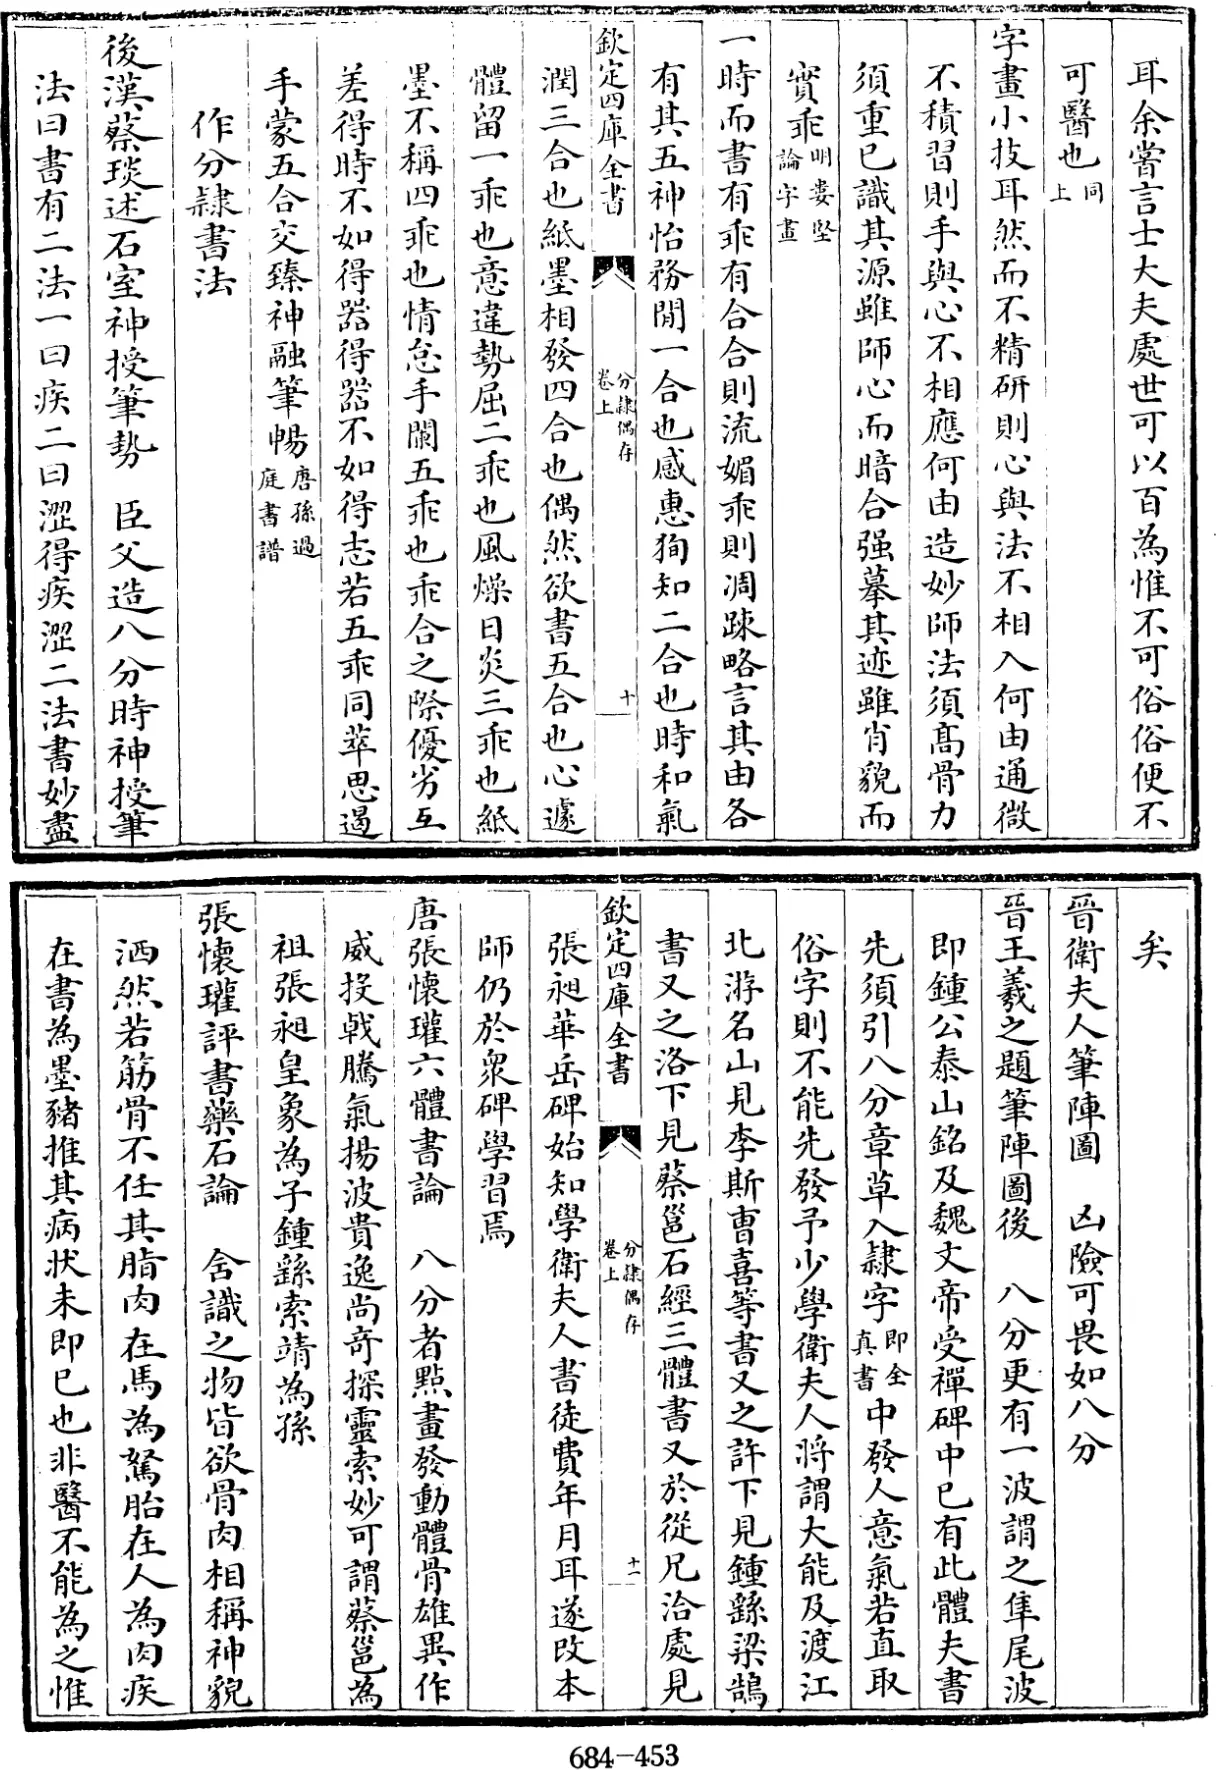 耳余嘗言士大夫處世可以百為惟不可俗俗便不
可醫也同上
字畫小技耳然而不精研則心與法不相入何由通微
不積習則手與心不相應何由造妙師法須高骨力
須重已識其源雖師心而暗合强摹其迹雖肖貌而
實乖明婁堅論字畫
一時而書有乖有合合則流媚乖則凋疎略言其由各
有其五神怡務閒一合也感惠狥知二合也時和氣
欽定四庫全書 分隸偶存卷上 十
潤三合也紙墨相發四合也偶然欲書五合也心遽
體留一乖也意違勢屈二乖也風燥日炎三乖也紙
墨不稱四乖也情怠手闌五乖也乖合之際優劣互
差得時不如得器得器不如得志若五乖同萃思遏
手蒙五合交臻神融筆暢唐孫過庭書譜
作分隸書法
後漢蔡琰述石室神授筆勢 臣父造八分時神授筆
法曰書有二法一曰疾二曰澀得疾澀二法書妙盡
矣
晉衛夫人筆陣圖 凶險可畏如八分
晉王羲之題筆陣圖後 八分更有一波謂之隼尾波
即鍾公泰山銘及魏文帝受禪碑中已有此體夫書
先須引八分章草入隸字即全真書中發人意氣若直取
俗字則不能先發予少學衛夫人將謂大能及渡江
北游名山見李斯曹喜等書又之許下見鍾繇梁鵠
書又之洛下見蔡邕石經三體書又於從兄洽處見
欽定四庫全書 分隸偶存卷上 十一
張昶華岳碑始知學衛夫人書徒費年月耳遂改本
師仍於衆碑學習焉
唐張懷瓘六體書論 八分者點畫發動體骨雄異作
威投戟騰氣揚波貴逸尚奇探靈索妙可謂蔡邕為
祖張昶皇象為子鍾繇索靖為孫
張懷瓘評書藥石論 含識之物皆欲骨肉相稱神貌
洒然若筋骨不任其脂肉在馬為駑胎在人為肉疾
在書為墨豬推其病狀未即已也非醫不能為之惟
684-453